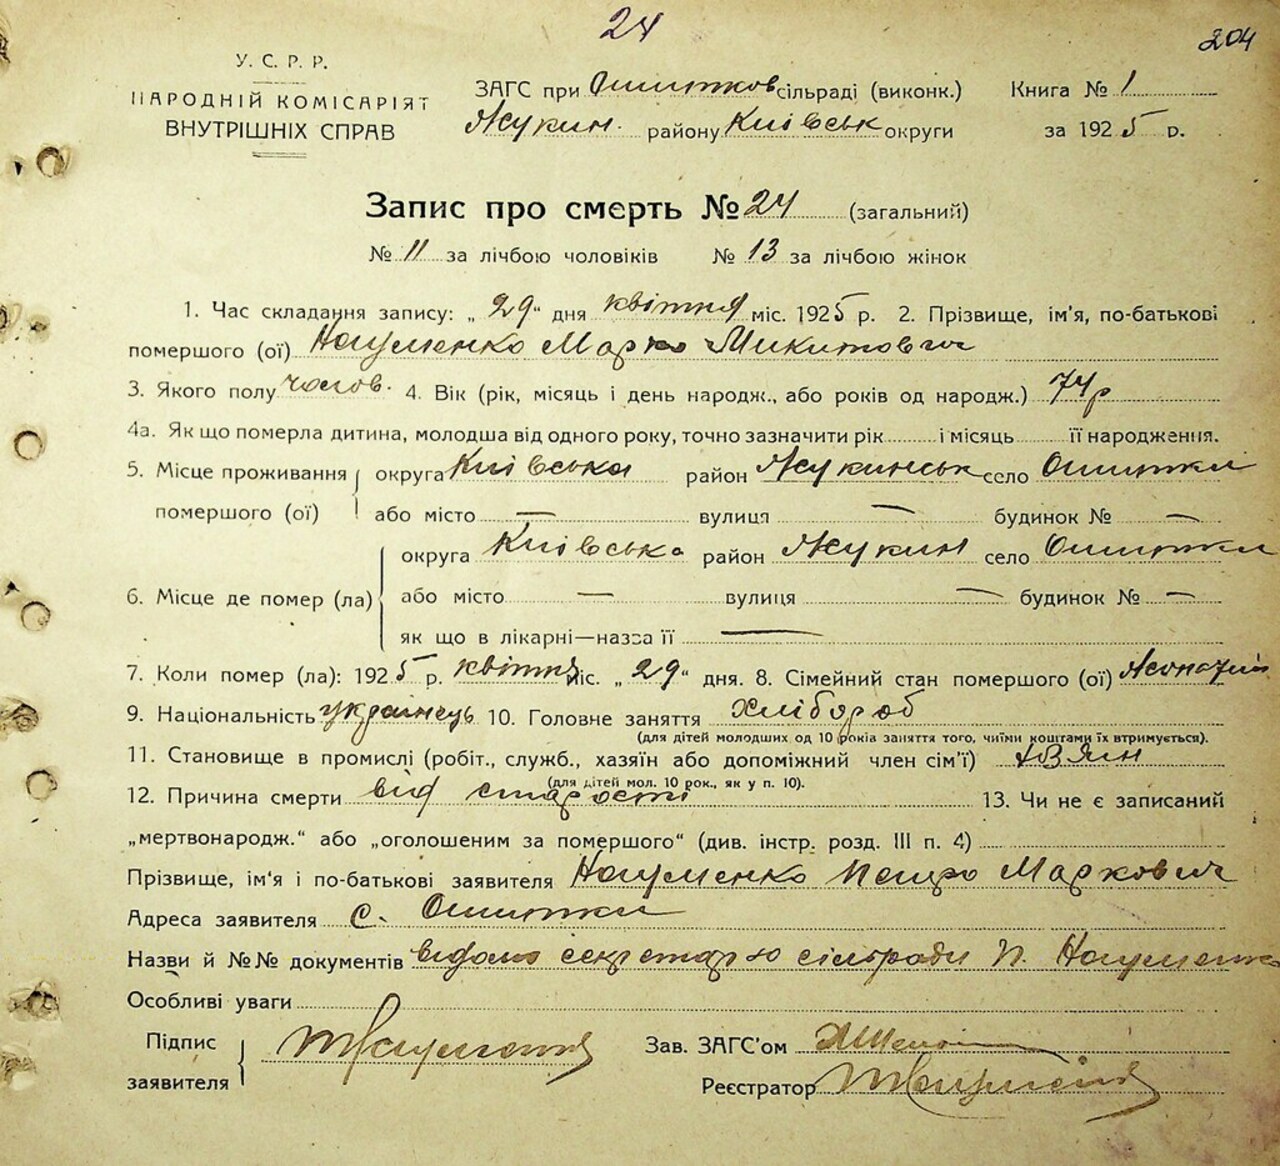 24
204
У. С. Р. Р.
НАРОДНІЙ КОМІСАРІЯТ
ВНУТРІШНІХ СПРАВ
ЗАГС при Ошитков сільраді (виконк.) Книга № 1
Жукин. району Київськ округи за 1925 р.
Запис про смерть № 24 (загальний)
№ 11 за лічбою чоловіків № 13 за лічбою жінок
1. Час складання запису: „29“ дня квітня міс. 1925 р. 2. Прізвище, ім'я, по-батькові
помершого (ої) Науменко Марко Микитович
3. Якого полу чолов. 4. Вік (рік, місяць і день народж., або років од народж.) 74 р
4а. Як що померла дитина, молодша від одного року, точно зазначити рік і місяць її народження.
5. Місце проживання округа Київська район Жукинськ село Ошитки
помершого (ої) або місто — вулиця — будинок № —
округа Київська район Жукин село Ошитки
6. Місце де помер (ла) або місто — вулиця — будинок № —
як що в лікарні—назва її —
7. Коли помер (ла): 1925 р. квітня міс. „29“ дня. 8. Сімейний стан помершого (ої) Жонатий
9. Національність українець 10. Головне заняття хлібороб
(для дітей молодших од 10 років заняття того, чиїми коштами їх втримується).
11. Становище в промислі (робіт., служб., хазяїн або допоміжний член сім'ї)
(для дітей мол. 10 рок., як у п. 10).
12. Причина смерти від старості 13. Чи не є записаний
„мертвонародж.“ або „оголошеним за помершого“ (див. інстр. розд. III п. 4)
Прізвище, ім'я і по-батькові заявителя Науменко Петро Маркович
Адреса заявителя с. Ошитки
Назви й №№ документів відомо секретарю сільради П. Науменко
Особливі уваги
Підпис
заявителя
Зав. ЗАГС'ом
Реєстратор